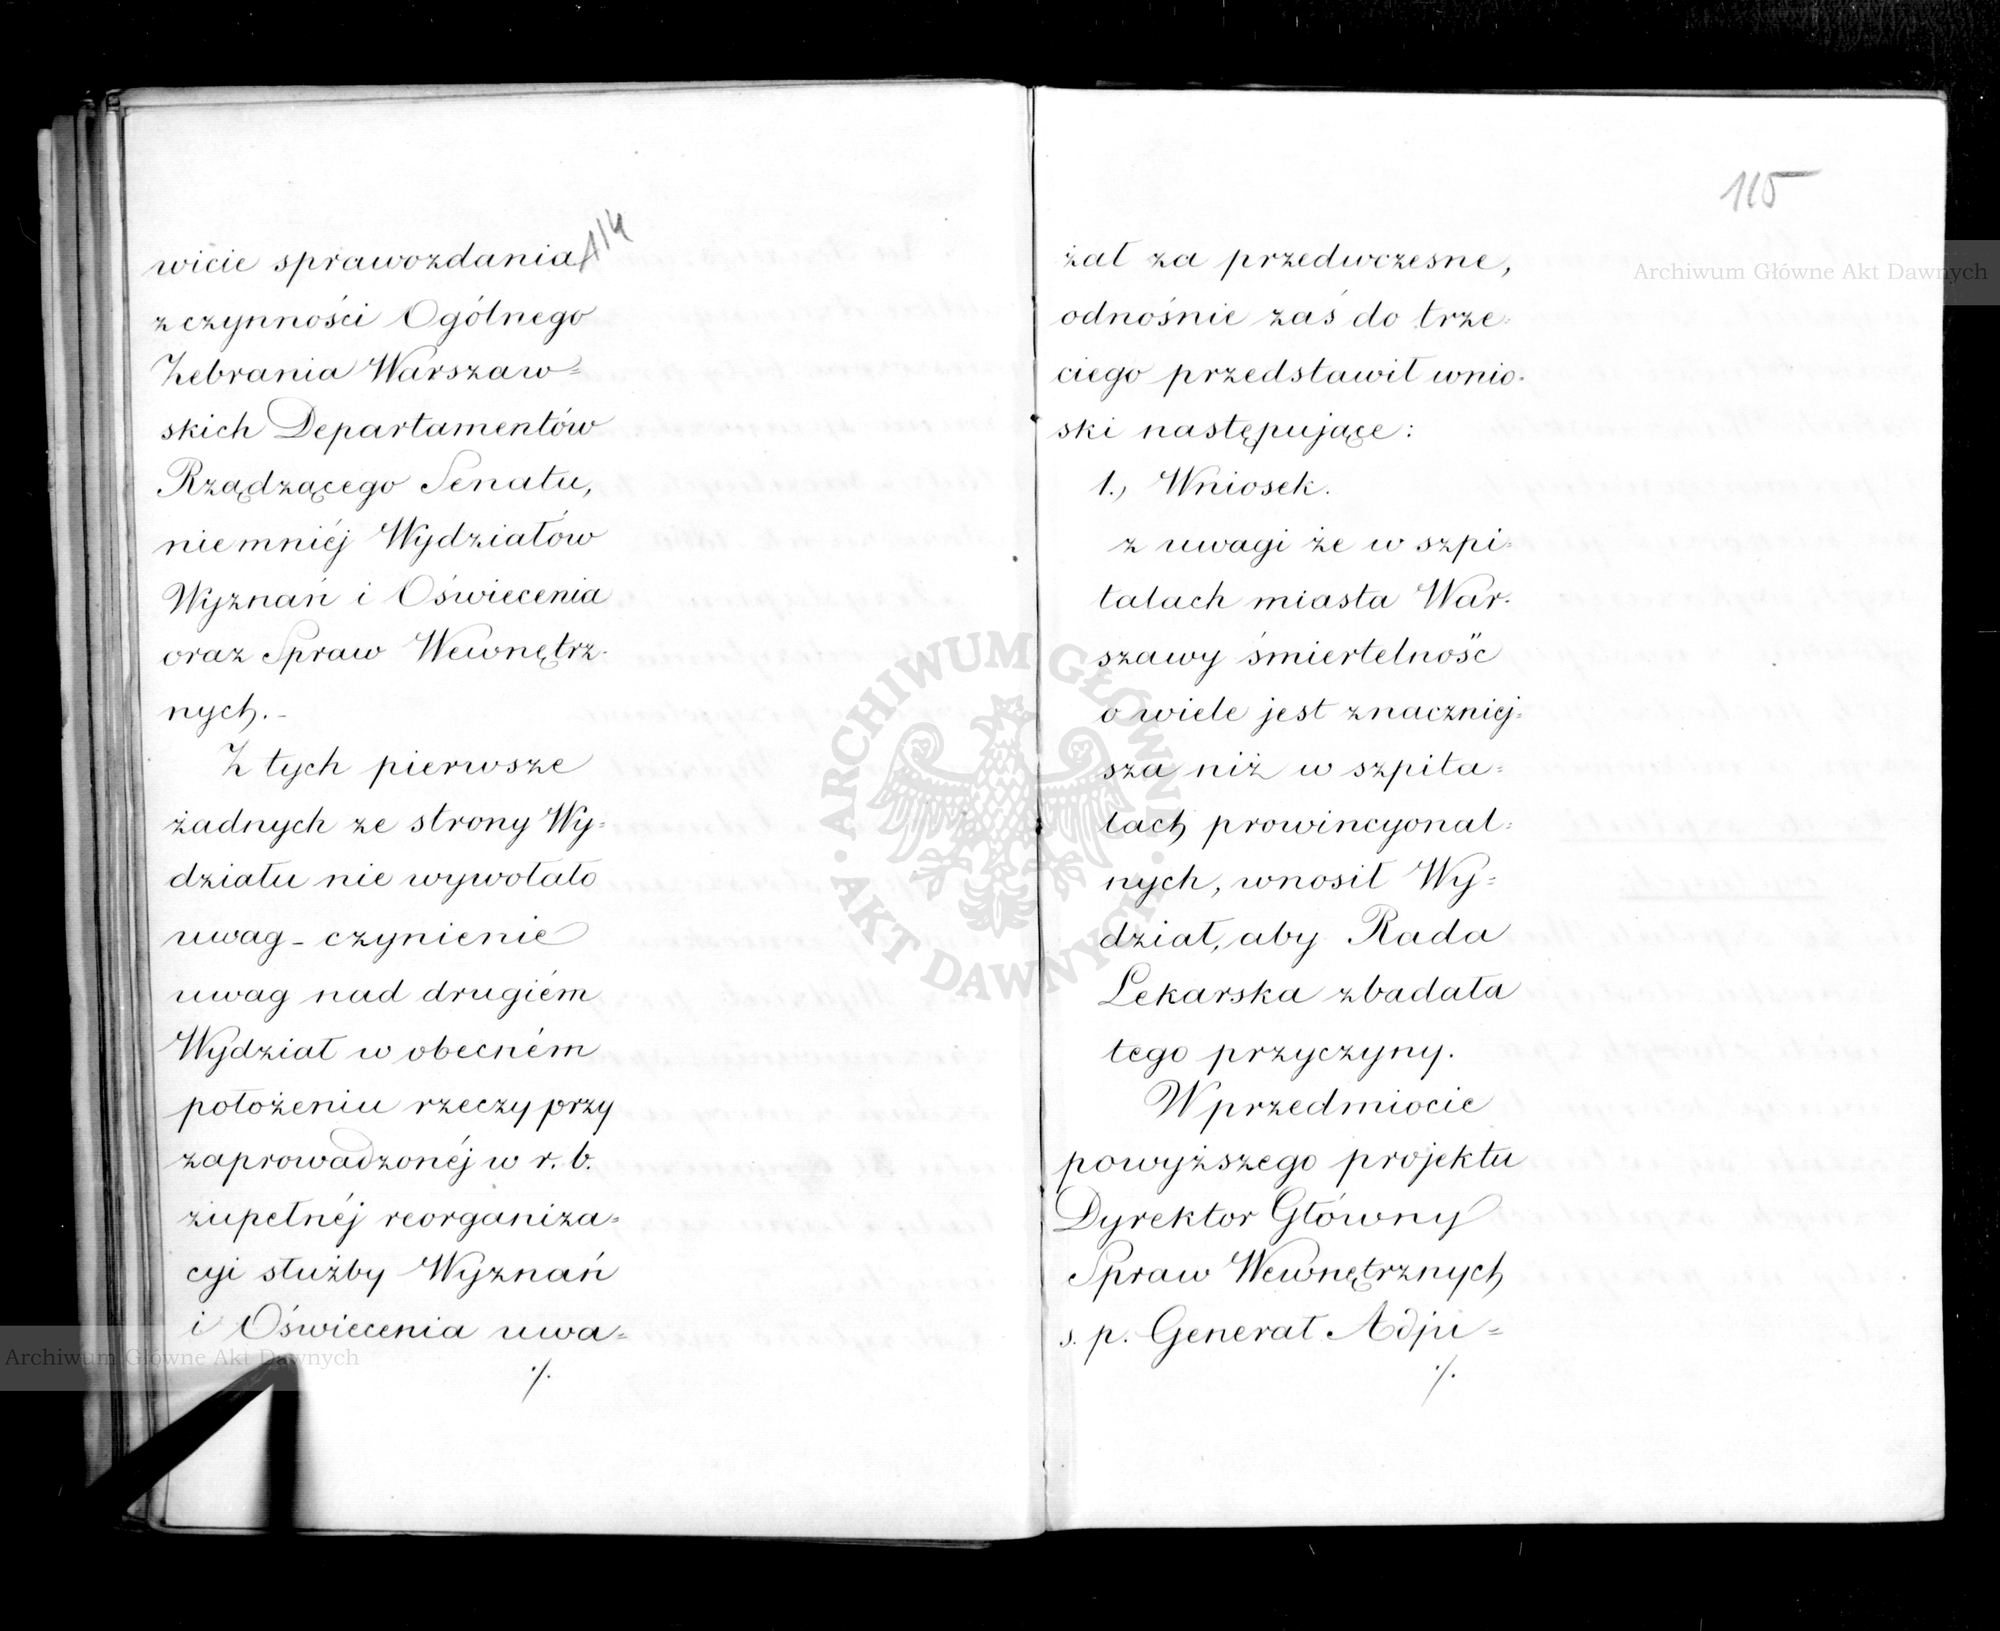 114
wicie sprawozdania
z czynności Ogólnego
Zebrania Warszaw=
skich Departamentów
Rządzącego Senatu,
niemniéj Wydziałów
Wyznań i Oświecenia
oraz Spraw Wewnętrz-
nych.-
Z tych pierwsze
żadnych ze strony Wy=
działu nie wywołało
uwag - czynienie
uwag nad drugiém
Wydział w obecném
położeniu rzeczy przy
zaprowadzonéj w r. b.
zupełnéj reorganiza=
cyi służby Wyznań
i Oświecenia uwa=
./.
115
żał za przedwczesne,
odnośnie zaś do trze=
ciego przedstawił wnio-
ski następujące:
1., Wniosek.
z uwagi że w szpi=
talach miasta War-
szawy śmiertelność
o wiele jest znaczniej=
sza niż w szpita=
lach prowincyonal=
nych, wnosił Wy=
dział, aby Rada
Lekarska zbadała
tego przyczyny.
W przedmiocie
powyższego projektu
Dyrektor Główny
Spraw Wewnętrznych
s. p. Generał Adju=
./.
Archiwum Główne Akt Dawnych
Archiwum Główne Akt Dawnych
ARCHIWUM GŁÓWNE · AKT DAWNYCH ·